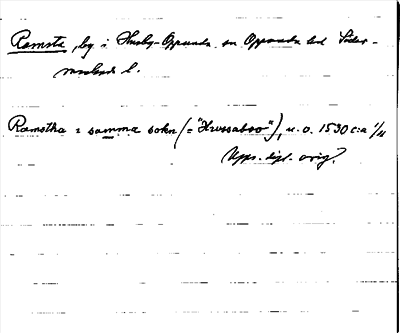 Ramsta, by i Husby-Oppunda sn Oppunda hd Söder-
manlands l.
Ramstha i samma sokn (= "Hwssaboo"), u. o. 1530 c:a 1/11
Upps. dipl. orig.